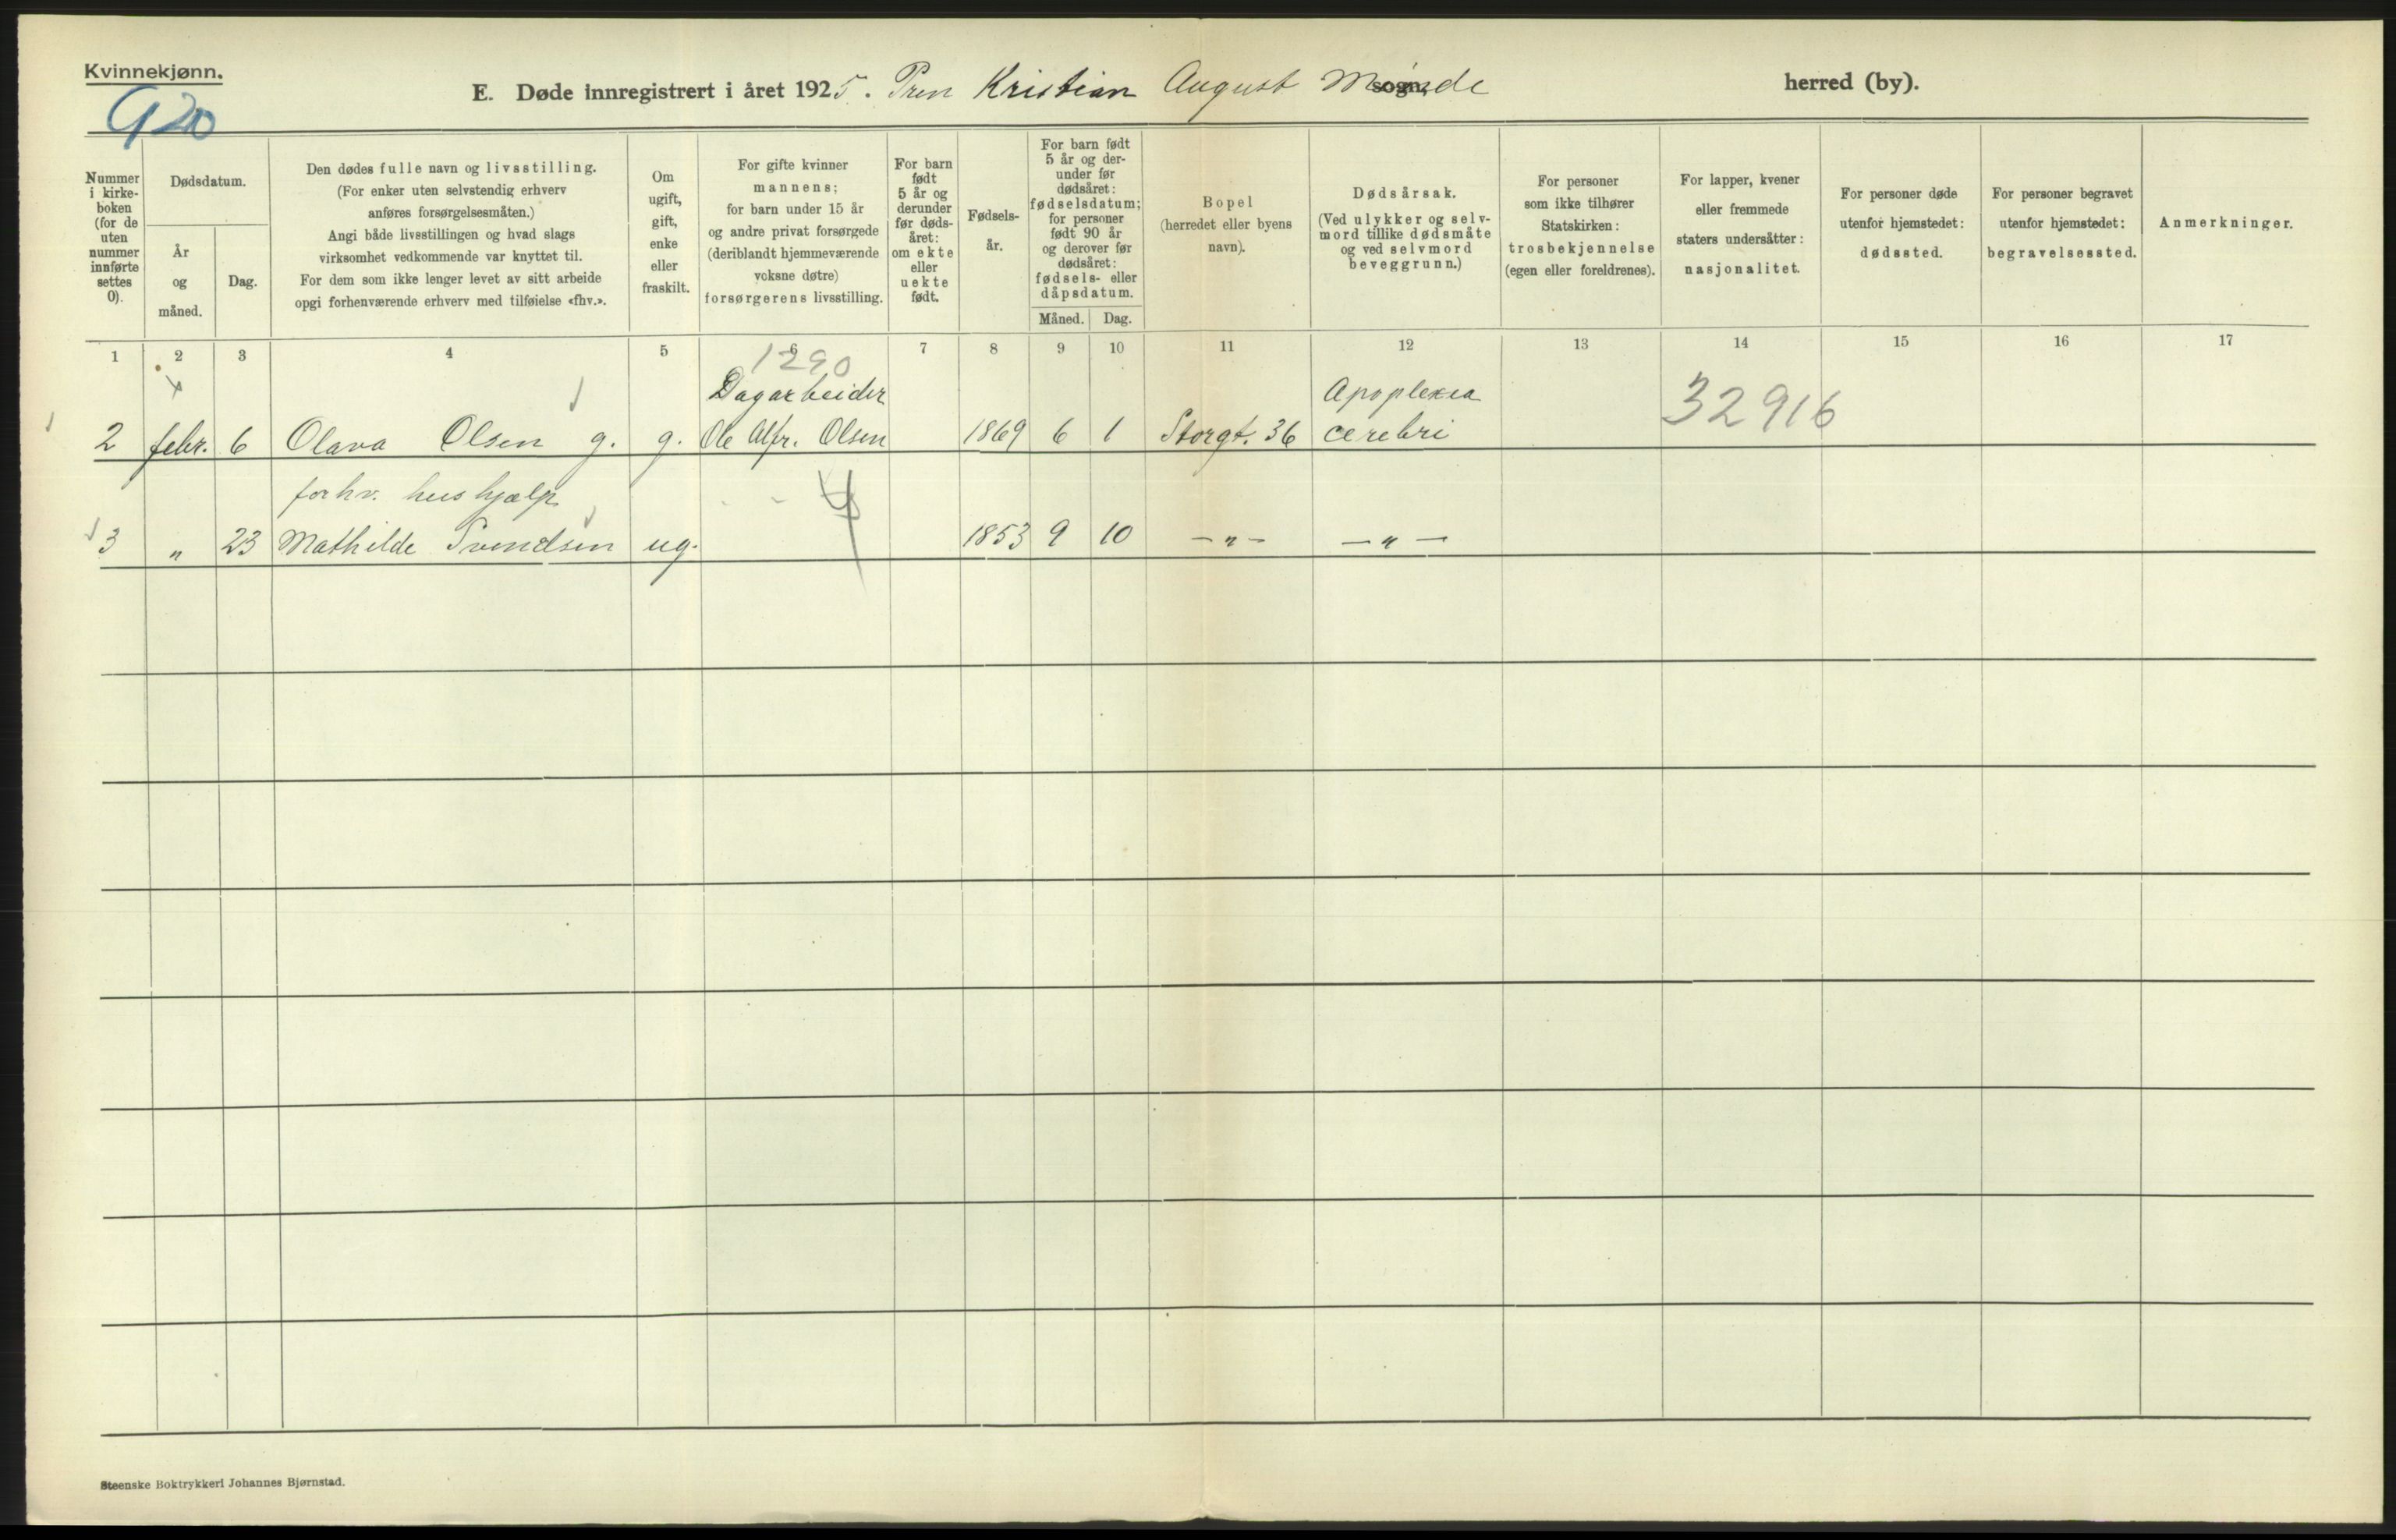 Kvinnekjønn.
920
E. Døde innregistrert i året 1925. Kristian August sogn, herred (by).
Nummer
i kirke-
boken
(for de
uten
nummer
innførte
settes
0).
Dødsdatum.
År
og
måned.
Dag.
Den dødes fulle navn og livsstilling.
(For enker uten selvstendig erhverv
anføres forsørgelsesmåten.)
Angi både livsstillingen og hvad slags
virksomhet vedkommende var knyttet til.
For dem som ikke lenger levet av sitt arbeide
opgi forhenværende erhverv med tilføielse «fhv.».
Om
ugift,
gift,
enke
eller
fraskilt.
For gifte kvinner
mannens;
for barn under 15 år
og andre privat forsørgede
(deriblandt hjemmeværende
voksne døtre)
forsørgerens livsstilling.
For barn
født
5 år og
derunder
før døds-
året:
om ekte
eller
uekte
født.
Fødsels-
år.
For barn født
5 år og der-
under før
dødsåret:
fødselsdatum;
for personer
født 90 år
og derover før
dødsåret:
fødsels- eller
dåpsdatum.
Måned. Dag.
Bopel
(herredet eller byens
navn).
Dødsårsak.
(Ved ulykker og selv-
mord tillike dødsmåte
og ved selvmord
beveggrunn.)
For personer
som ikke tilhører
Statskirken:
trosbekjennelse
(egen eller foreldrenes).
For lapper, kvener
eller fremmede
staters undersåtter:
nasjonalitet.
For personer døde
utenfor hjemstedet:
dødssted.
For personer begravet
utenfor hjemstedet:
begravelsessted.
Anmerkninger.
1 2 3 4 5 6 7 8 9 10 11 12 13 14 15 16 17
1290
Dagarbeider Apoplexia 32916
2 febr. 6 Olava Olsen g. g. Ole Alfr. Olsen 1869 6 1 Storgt. 36 cerebri
forhv. hushjælp
3 " 23 Mathilde Svendsen ug. 1853 9 10 —"— —"—
Steenske Boktrykkeri Johannes Bjørnstad.